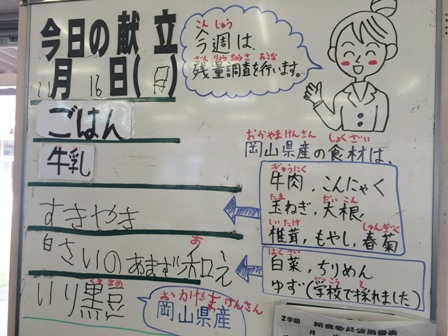 今日の献立
11月16日(月)
ごはん
牛乳
すきやき
白さいのあまず和え
お
いり黒豆
くろまめ
こんしゅう
今週は
ざんりょうちょうさ おこな
残量調査を行います。
おかやまけんさん しょくざい
岡山県産の食材は、
ぎゅうにく
牛肉、こんにゃく
たま だいこん
玉ねぎ、大根、
しいたけ しゅんぎく
椎茸、もやし、春菊
はくさい
白菜、ちりめん
がっこう と
ゆず(学校で採れました)
おかやまけんさん
岡山県産
2学期 給食委員会当番表